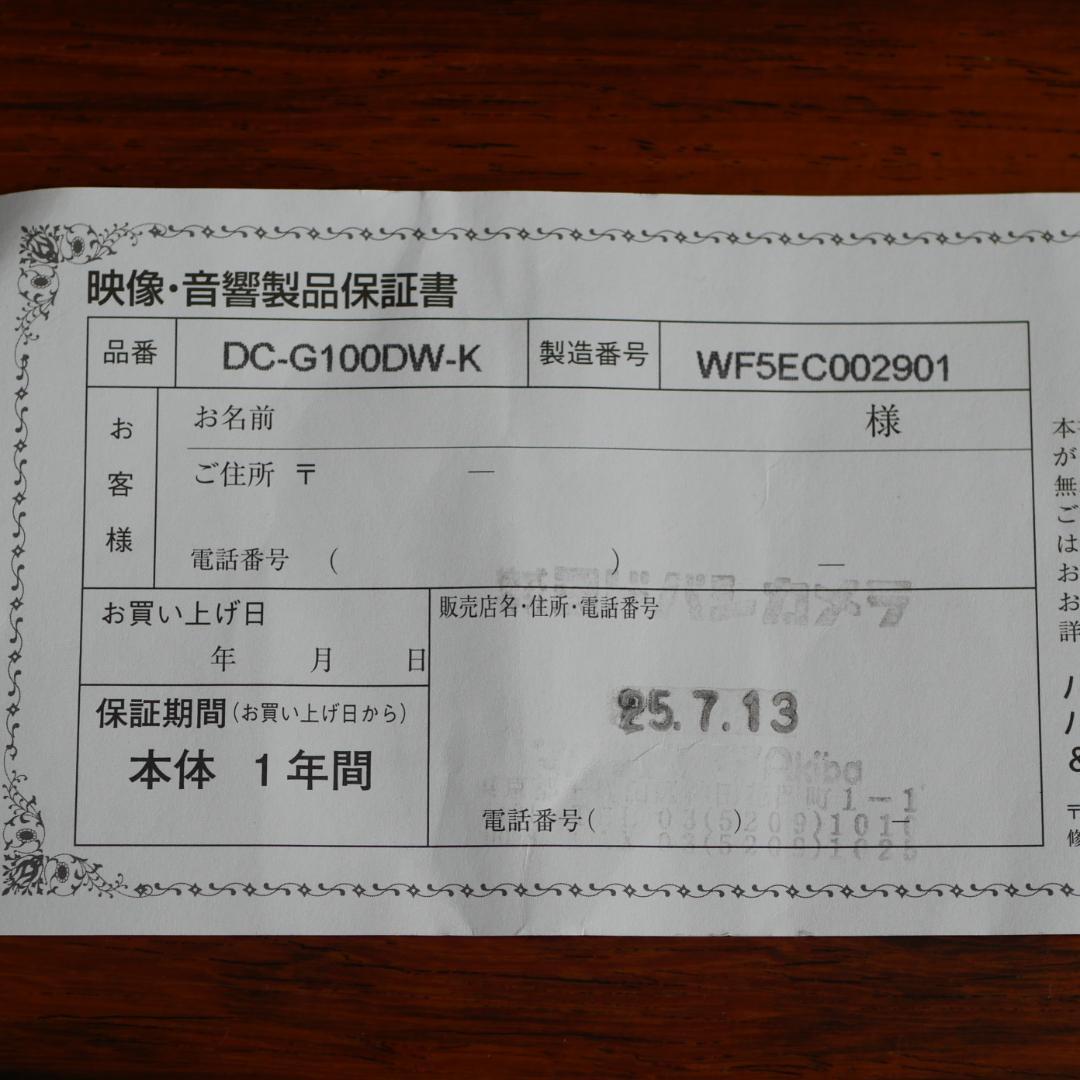 映像・音響製品保証書
品番 DC-G100DW-K 製造番号 WF5EC002901
お客様
お名前 様
ご住所 〒 —
電話番号 ( ) —
お買い上げ日
年 月 日
販売店名・住所・電話番号
25.7.13
保証期間(お買い上げ日から)
本体 1年間
Akiba
町1-1
電話番号( ) —
03(5209)1010
03(5209)1025
本
が
無
ご
は
お
お
詳
パ
パ
&
〒
修